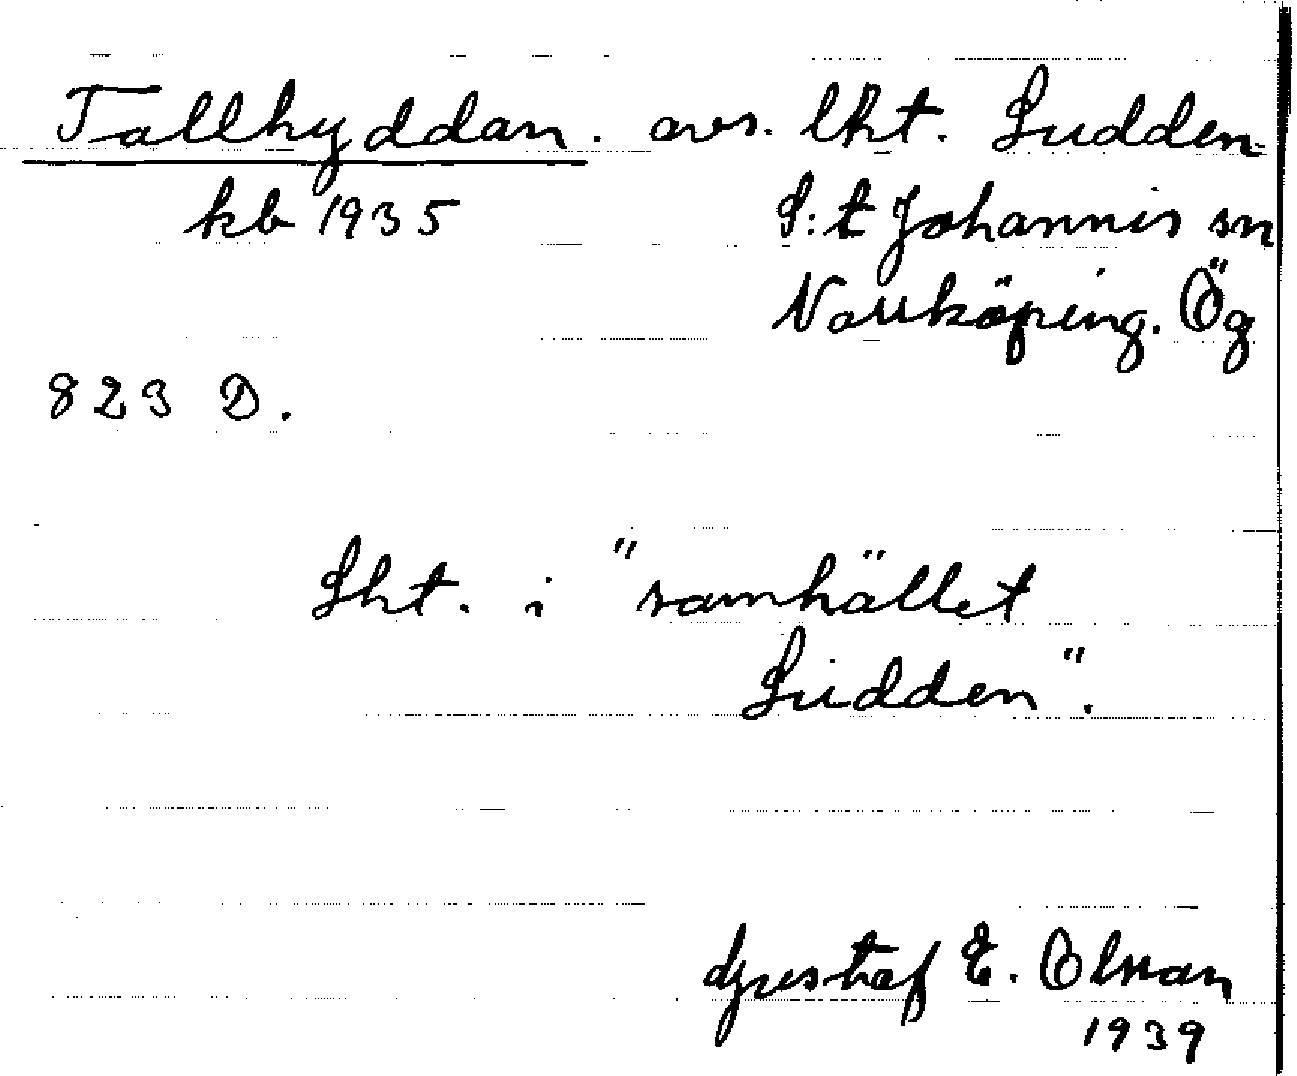 Tallhyddan. avs. lht. Ludden-
kb 1935 S:t Johannis sn
Norrköping. Ög
823 D.
Lht. i "samhället
Ludden".
Gustaf E. Olsson
1939